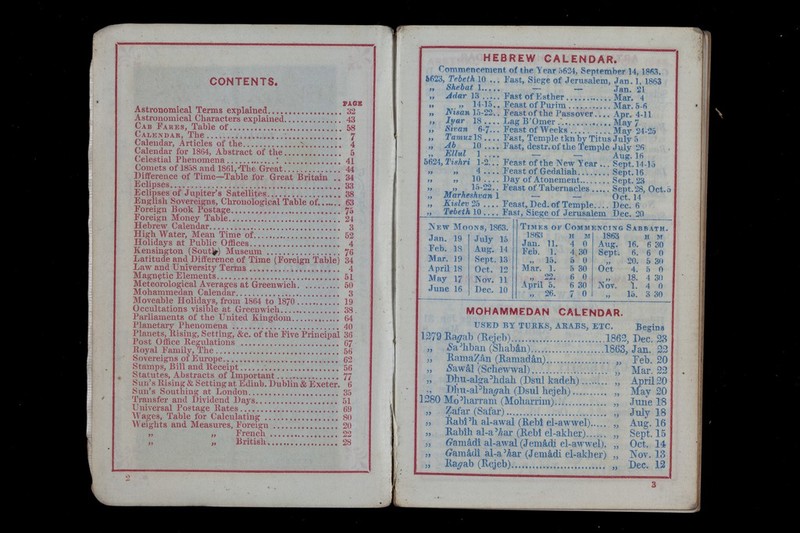 CONTENTS.
PAGE
Astronomical Terms explained 32
Astronomical Characters explained 43
CAB FARES, Table of 58
CALENDAR, The 7
Calendar, Articles of the 4
Calendar for 1864, Abstract of the 5
Celestial Phenomena 41
Comets of 1858 and 1861, The Great 44
Difference of Time—Table for Great Britain 34
Eclipses 33
Eclipses of Jupiter's Satellites 38
English Sovereigns, Chronological Table of 63
Foreign Book Postage 75
Foreign Money Table 24
Hebrew Calendar 3
High Water, Mean Time of 52
Holidays at Public Offices 4
Kensington (South) Museum 76
Latitude and Difference of Time (Foreign Table) 34
Law and University Terms 4
Magnetic Elements 51
Meteorological Averages at Greenwich 50
Mohammedan Calendar 3
Moveable Holidays, from 1864 to 1870 19
Occultations visible at Greenwich 38
Parliaments of the United Kingdom 64
Planetary Phenomena 40
Planets, Rising, Setting, &c. of the Five Principal 36
Post Office Regulations 67
Royal Family, The 56
Sovereigns of Europe 62
Stamps, Bill and Receipt 56
Statutes, Abstracts of Important 77
Sun's Rising & Setting at Edinb. Dublin & Exeter. 6
Sun's Southing at London 35
Transfer and Dividend Days 51
Universal Postage Rates 69
Wages, Table for Calculating 80
Weights and Measures, Foreign 20
„ „ French 22
„ „ British 28
2
HEBREW CALENDAR.
Commencement of the Year 5624, September 14, 1863.
5623, Tebeth 10 ... Fast, Siege of Jerusalem, Jan. 1, 1863
„ Shebat 1..... — — Jan. 21
„ Adar 13 ..... Fast of Esther ........... Mar. 4
„ „ 14-15.. Feast of Purim ........... Mar. 5-6
„ Nisan 15-22.. Feast of the Passover .... Apr. 4-11
„ Iyar 18 .... Lag B'Omer .............. May 7
„ Sivan 6-7... Feast of Weeks .......... May 24-25
„ Tamuz 18 .... Fast, Temple tkn by Titus July 5
„ Ab 10 .... Fast, destr. of the Temple July 26
„ Ellul 1 .... — — Aug. 16
5624, Tishri 1-2... Feast of the New Year ... Sept. 14-15
„ „ 4 .... Feast of Gedaliah ........ Sept. 16
„ „ 10 .... Day of Atonement........ Sept. 23
„ „ 15-22.. Feast of Tabernacles ...... Sept. 28, Oct. 5
„ Marheshvan 1 — — Oct. 14
„ Kislev 25 .... Feast, Ded. of Temple.... Dec. 6
„ Tebeth 10 .... Fast, Siege of Jerusalem Dec. 20
NEW MOONS, 1863.
Jan. 19 July 15
Feb. 18 Aug. 14
Mar. 19 Sept. 13
April 18 Oct. 12
May 17 Nov. 11
June 16 Dec. 10
TIMES OF COMMENCING SABBATH.
1863 H M 1863 H M
Jan. 11. 4 0 Aug. 16. 6 30
Feb. 1. 4 30 Sept. 6. 6 0
„ 15. 5 0 „ 20. 5 30
Mar. 1. 5 30 Oct 4. 5 0
„ 22. 6 0 „ 18. 4 30
April 5. 6 30 Nov. 1. 4 0
„ 26. 7 0 „ 15. 3 30
MOHAMMEDAN CALENDAR.
USED BY TURKS, ARABS, ETC. Begins
1279 Ragab (Rejeb) 1862, Dec. 23
„ Sa'hban (Shabân) 1863, Jan. 22
„ RamaZân (Ramadân) „ Feb. 20
„ Sawâl (Schewwal) „ Mar. 22
„ Dhu-alga'hdah (Dsul kadeh) „ April 20
„ Dhu-al'hagah (Dsul hejeh) „ May 20
1280 Mo'harram (Moharrim) „ June 18
„ Zafar (Safar) „ July 18
„ Rabî'h al-awal (Rebî el-awwel) „ Aug. 16
„ Rabîh al-a'har (Rebî el-akher) „ Sept. 15
„ Gamâdî al-awal (Jemâdi el-awwel) „ Oct. 14
„ Gamâdî al-a'har (Jemâdi el-akher) „ Nov. 13
„ Ragab (Rejeb) „ Dec. 12
3